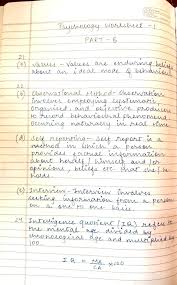 Psychology Worksheet - 1
PART - B
21.
(a) Values - Values are enduring beliefs
about an ideal mode of behaviour
22.
(b) Observational Method - Observation
involves employing systematic,
organised and objective procedures
to record behavioural phenomena
occuring naturally in real time
(d) Self reporting - Self report is a
method in which a person
provides factual information
about herself / himself and / or
opinions, beliefs etc. that she / he
holds.
(e) Interview - Interview involves
seeking information from a person
on a one to one basis
24. Intelligence quotient (IQ) refers to
the mental age divided by
chronological age and multiplied by
100.
IQ = MA/CA × 100